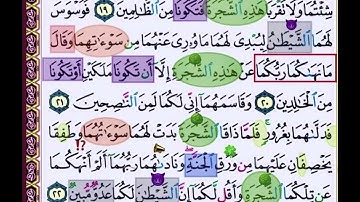 شِئْتُمَا وَلَا تَقْرَبَا هَٰذِهِ ٱلشَّجَرَةَ فَتَكُونَا مِنَ ٱلظَّٰلِمِينَ ١٩ فَوَسْوَسَ
لَهُمَا ٱلشَّيْطَٰنُ لِيُبْدِىَ لَهُمَا مَا وُۥرِىَ عَنْهُمَا مِن سَوْءَٰتِهِمَا وَقَالَ
مَا نَهَىٰكُمَا رَبُّكُمَا عَنْ هَٰذِهِ ٱلشَّجَرَةِ إِلَّآ أَن تَكُونَا مَلَكَيْنِ أَوْ تَكُونَا
مِنَ ٱلْخَٰلِدِينَ ٢٠ وَقَاسَمَهُمَآ إِنِّى لَكُمَا لَمِنَ ٱلنَّٰصِحِينَ ٢١
فَدَلَّىٰهُمَا بِغُرُورٍ فَلَمَّا ذَاقَا ٱلشَّجَرَةَ بَدَتْ لَهُمَا سَوْءَٰتُهُمَا وَطَفِقَا
يَخْصِفَانِ عَلَيْهِمَا مِن وَرَقِ ٱلْجَنَّةِ وَنَادَىٰهُمَا رَبُّهُمَآ أَلَمْ أَنْهَكُمَا
عَن تِلْكُمَا ٱلشَّجَرَةِ وَأَقُل لَّكُمَآ إِنَّ ٱلشَّيْطَٰنَ لَكُمَا عَدُوٌّ مُّبِينٌ ٢٢